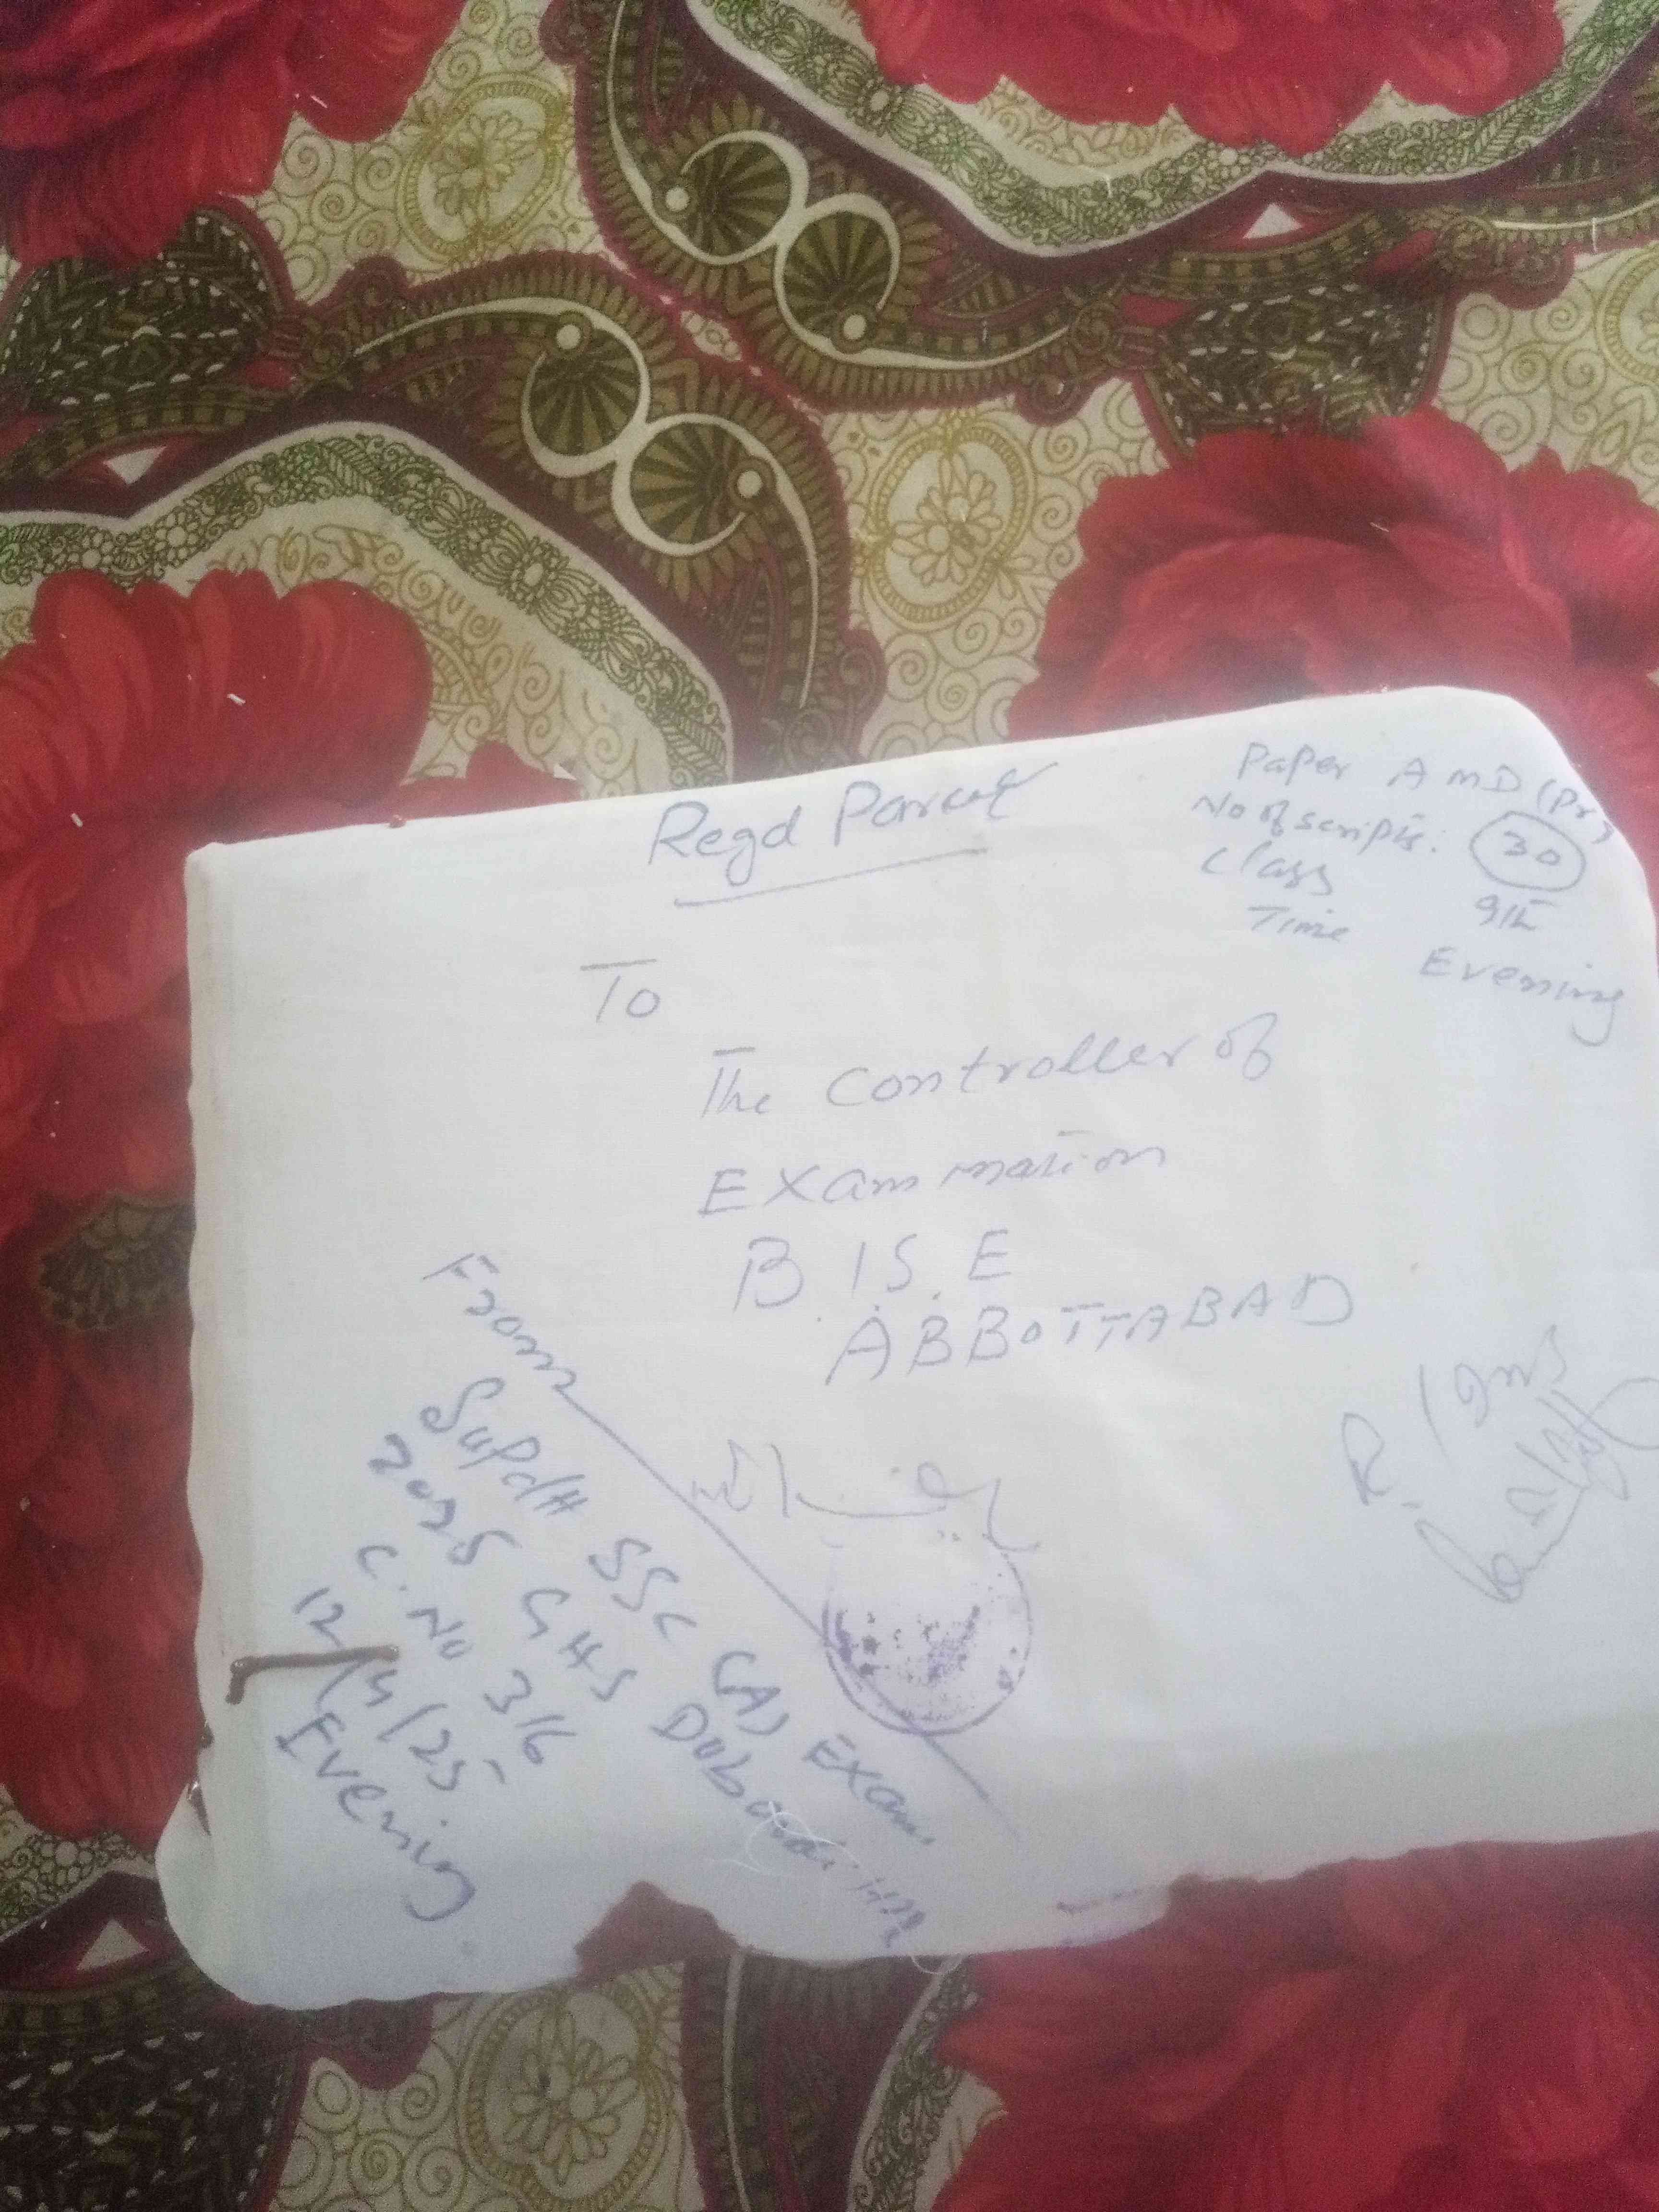 Regd Parcel
Paper A M D (Pr)
No of scripts: 30
Class 9th
Time Evening
To
The Controller of
Examination
B.IS.E
ABBOTTABAD
From
Supdtt SSC (A) Exam
2025 GHS
C. No 316
12/4/25
Evening
R.